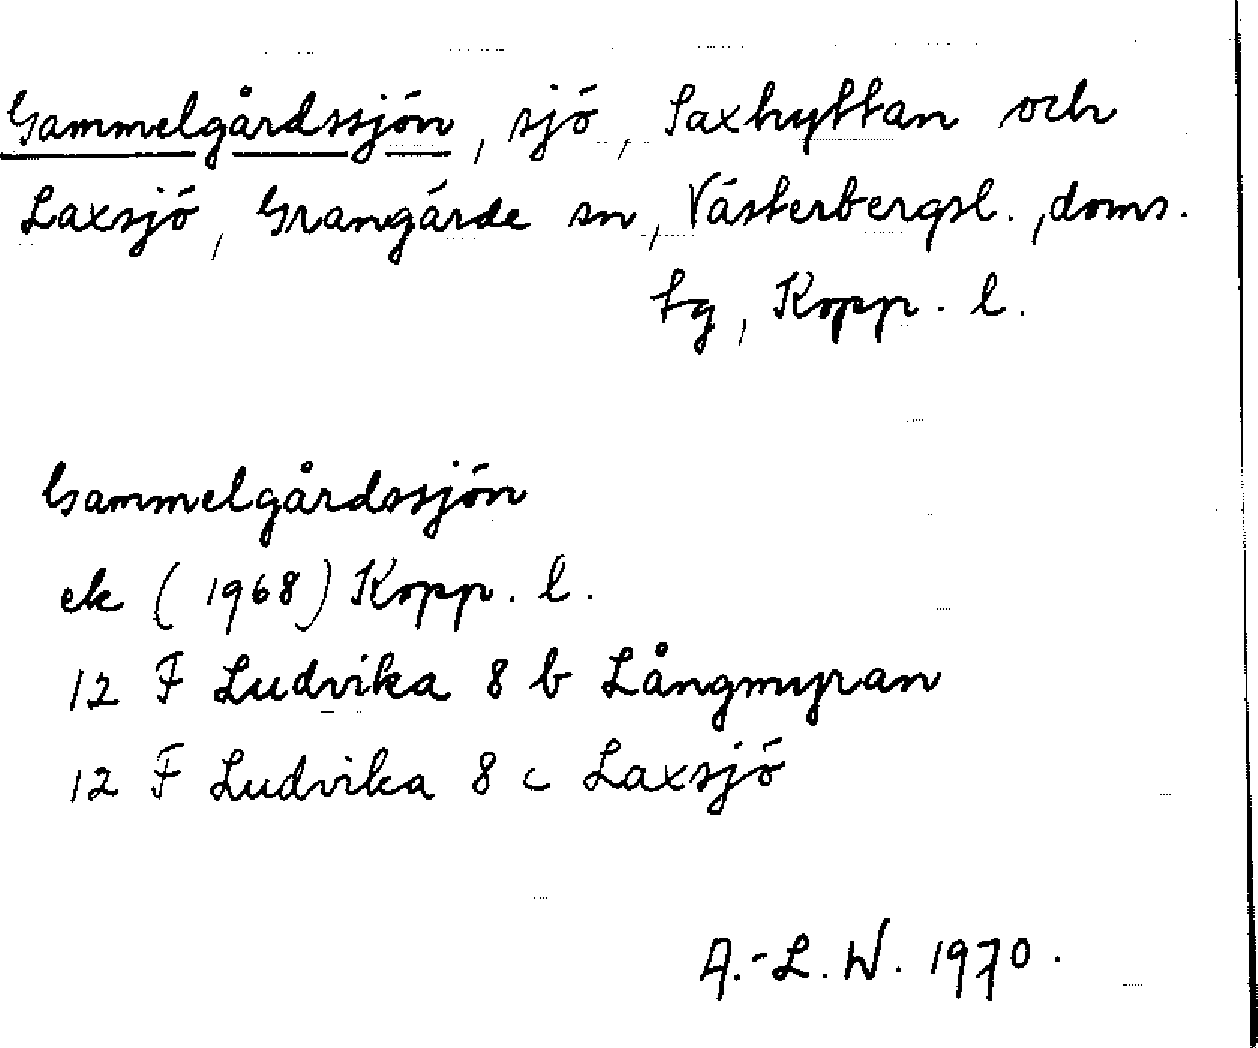 Gammelgårdssjön, sjö, Saxhyttan och
Laxsjö, Grangärde sn, Västerbergsl., doms.
tg, Kopp. l.
Gammelgårdssjön
ek (1968) Kopp. l.
12 F Ludvika 8 b Långmyran
12 F Ludvika 8 c Laxsjö
A.-L. W. 1970.